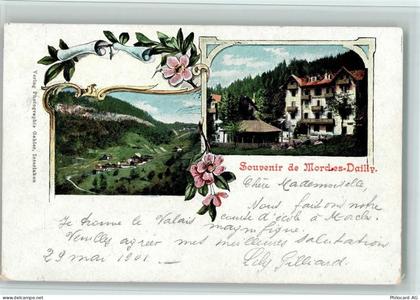 Verlag Photographie Gabler, Interlaken
Souvenir de Mordes-Dailly.
Chère Mademoiselle,
Nous fait on notre
course d'école à Mordes.
Je trouve le Valais magnifique.
Veuillez agréer mes meilleures salutations
29 mai 1901. Lily Gilliard.
www.ansichtskartenversand.com